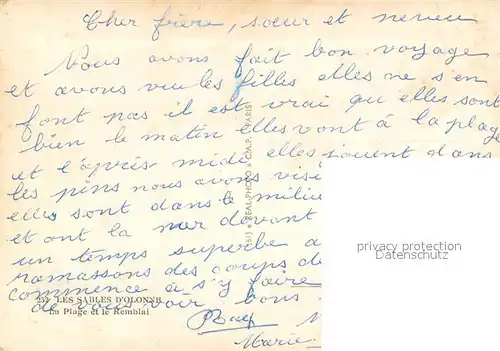 Cher frère, sœur et neveu
Nous avons fait bon voyage
et avons vu les filles elles ne s'en
font pas il est vrai qu'elles sont
bien le matin elles vont à la plage
et l'après midi elles jouent dans
les pins nous avons visi
elles sont dans le milieu
et ont la mer devant
un temps superbe a
ramassons des coups de
commence à s'y faire
de vous voir bons
LES SABLES D'OLONNE
La Plage et le Remblai
Marie
« REAL-PHOTO » C.A.P. PARIS
privacy protection
Datenschutz